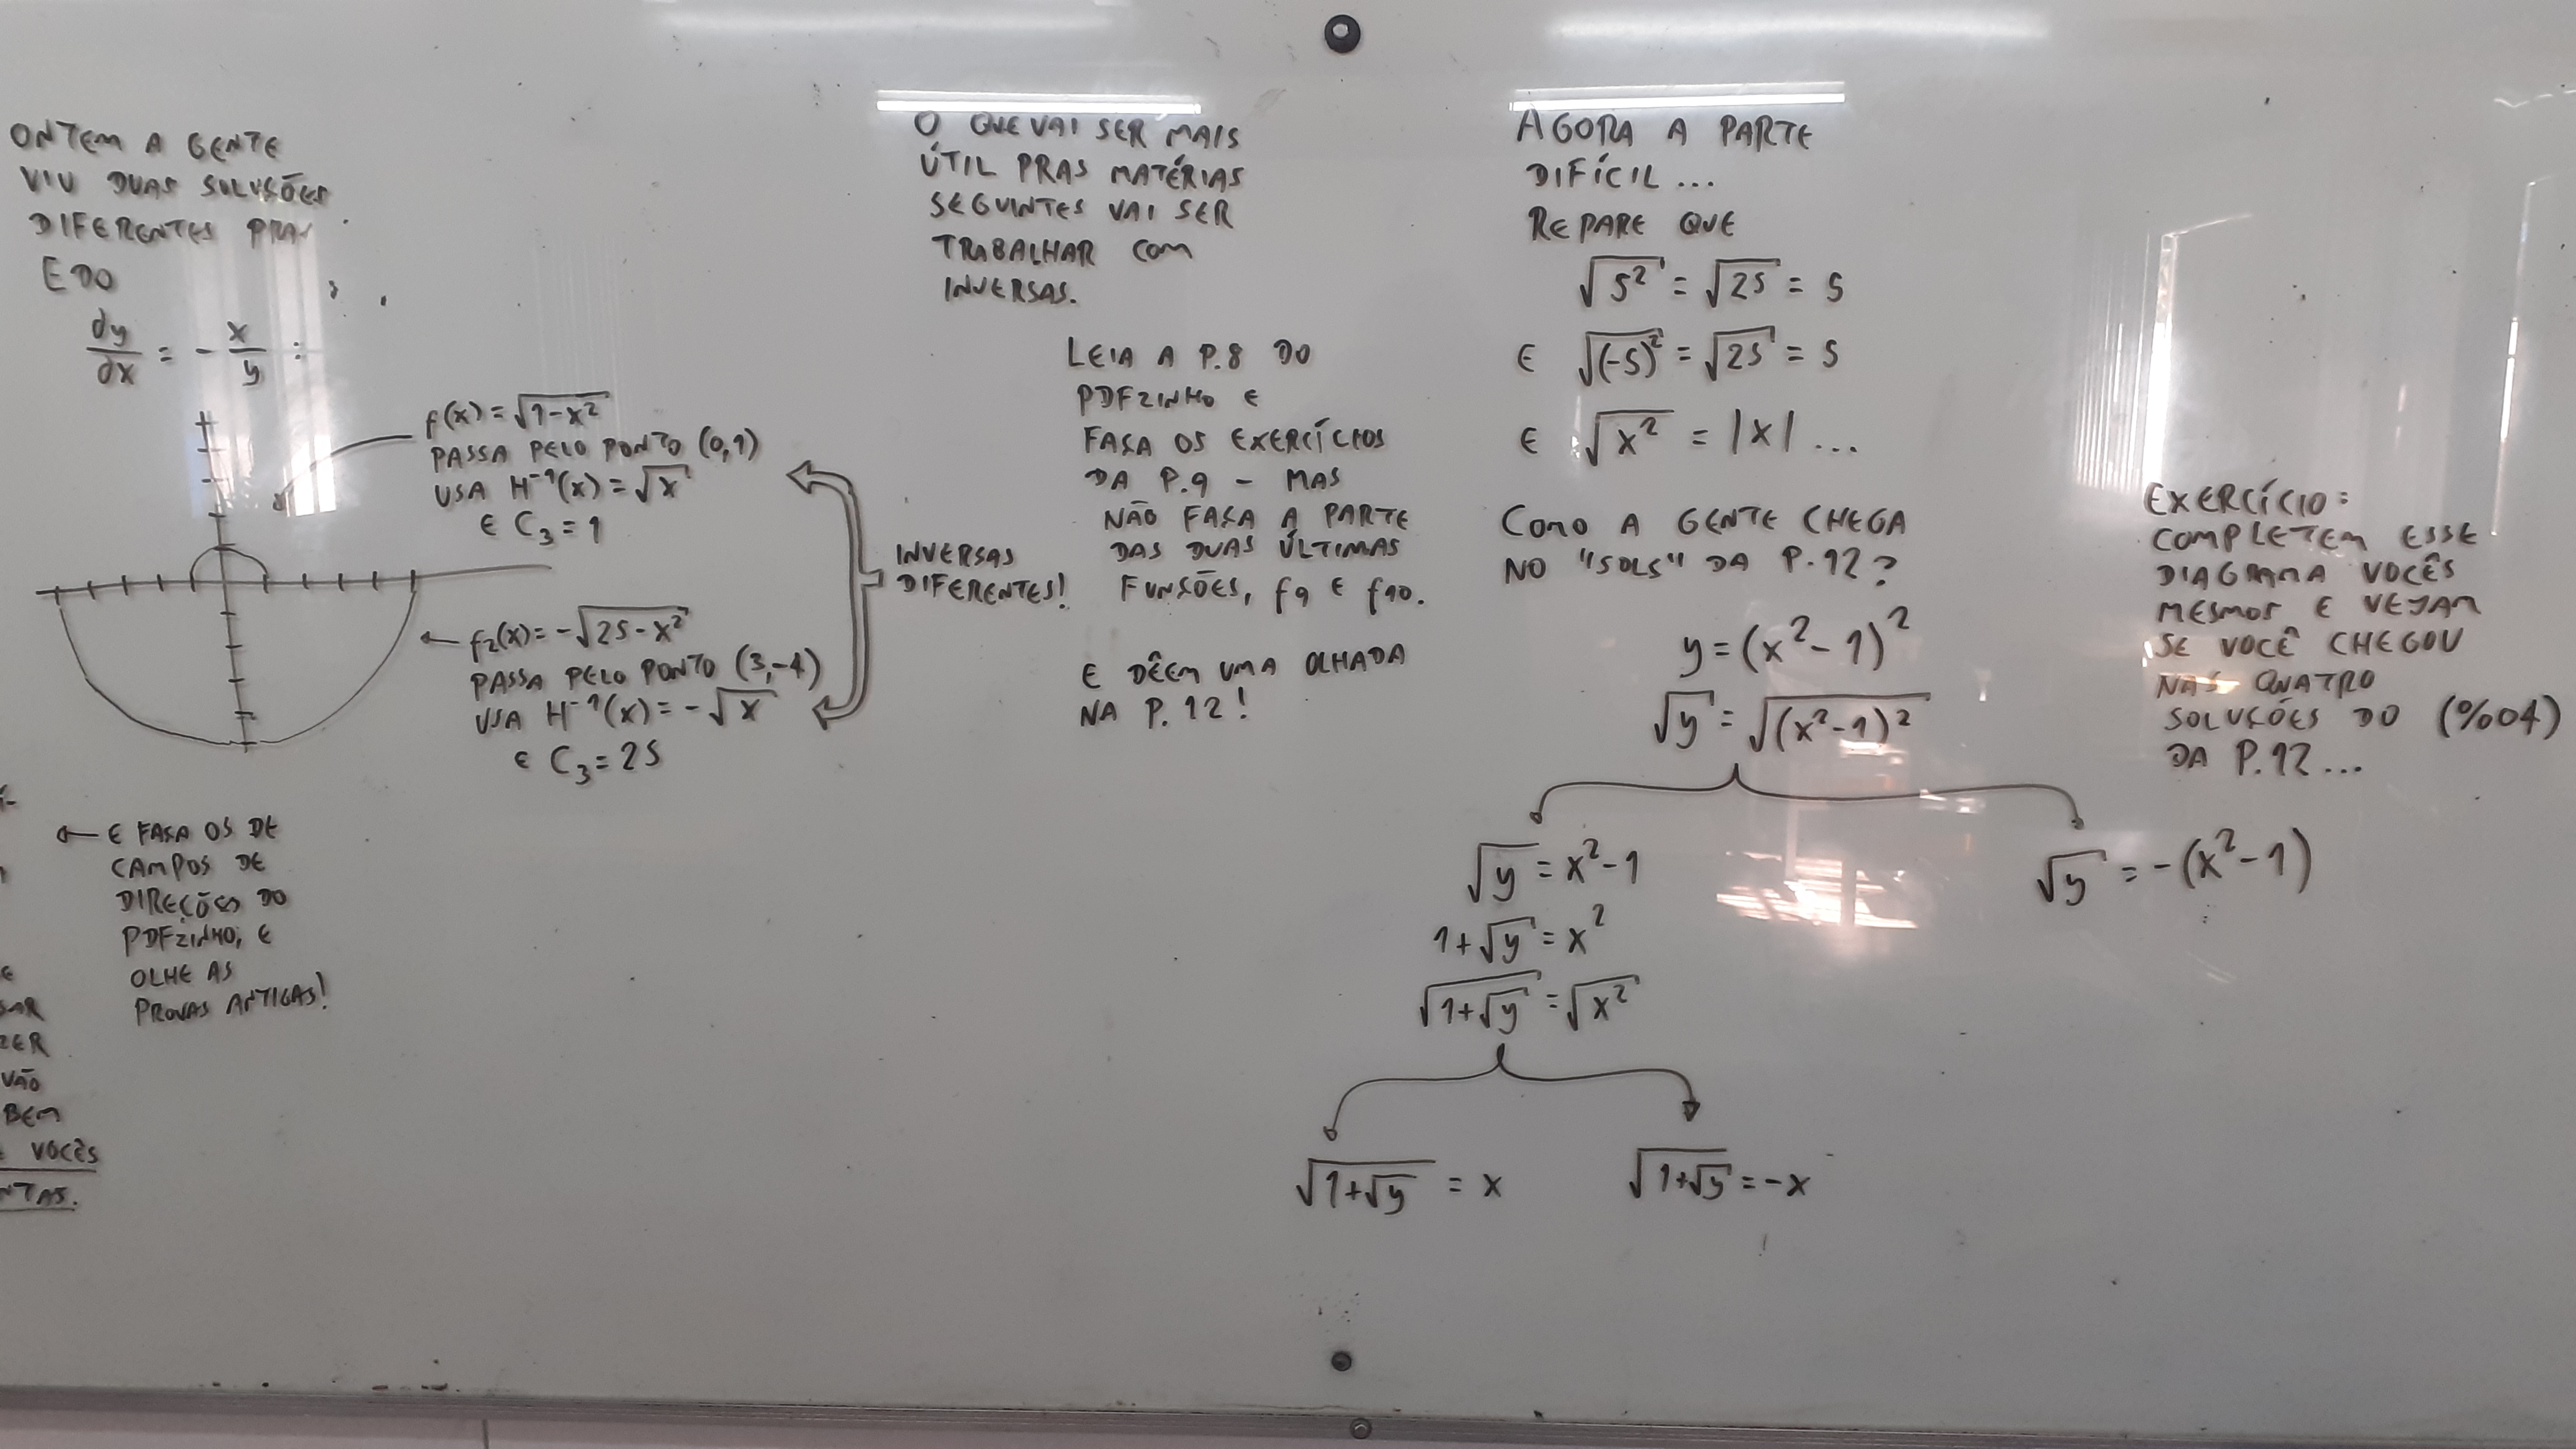 ONTEM A GENTE
VIU DUAS SOLUSÕES
DIFERENTES PRA
EDO
dy/dx = - x/y :
f(x) = √(1-x²)
PASSA PELO PONTO (0,1)
USA H⁻¹(x) = √x
E C₃ = 1
f₂(x) = -√(25-x²)
PASSA PELO PONTO (3,-4)
USA H⁻¹(x) = -√x
E C₃ = 25
INVERSAS
DIFERENTES!
← E FASA OS DE
CAMPOS DE
DIREÇÕES DO
PDFZINHO, E
OLHE AS
PROVAS ANTIGAS!
VÃO
BEM
VOCÊS
O QUE VAI SER MAIS
ÚTIL PRAS MATÉRIAS
SEGUINTES VAI SER
TRABALHAR COM
INVERSAS.
LEIA A P.8 DO
PDFZINHO E
FASA OS EXERCÍCIOS
DA P.9 - MAS
NÃO FASA A PARTE
DAS DUAS ÚLTIMAS
FUNSÕES, f9 E f10.
E DÊEM UMA OLHADA
NA P. 12!
AGORA A PARTE
DIFÍCIL...
REPARE QUE
√(5²) = √25 = 5
E √((-5)²) = √25 = 5
E √(x²) = |x| ...
COMO A GENTE CHEGA
NO "SOLS" DA P.12?
y = (x²-1)²
√y = √((x²-1)²)
√y = x²-1
1+√y = x²
√(1+√y) = √(x²)
√(1+√y) = x
√(1+√y) = -x
√y = -(x²-1)
⋮
EXERCÍCIO:
COMPLETEM ESSE
DIAGRAMA VOCÊS
MESMOS E VEJAM
SE VOCÊ CHEGOU
NAS QUATRO
SOLUÇÕES DO (%o4)
DA P.12...